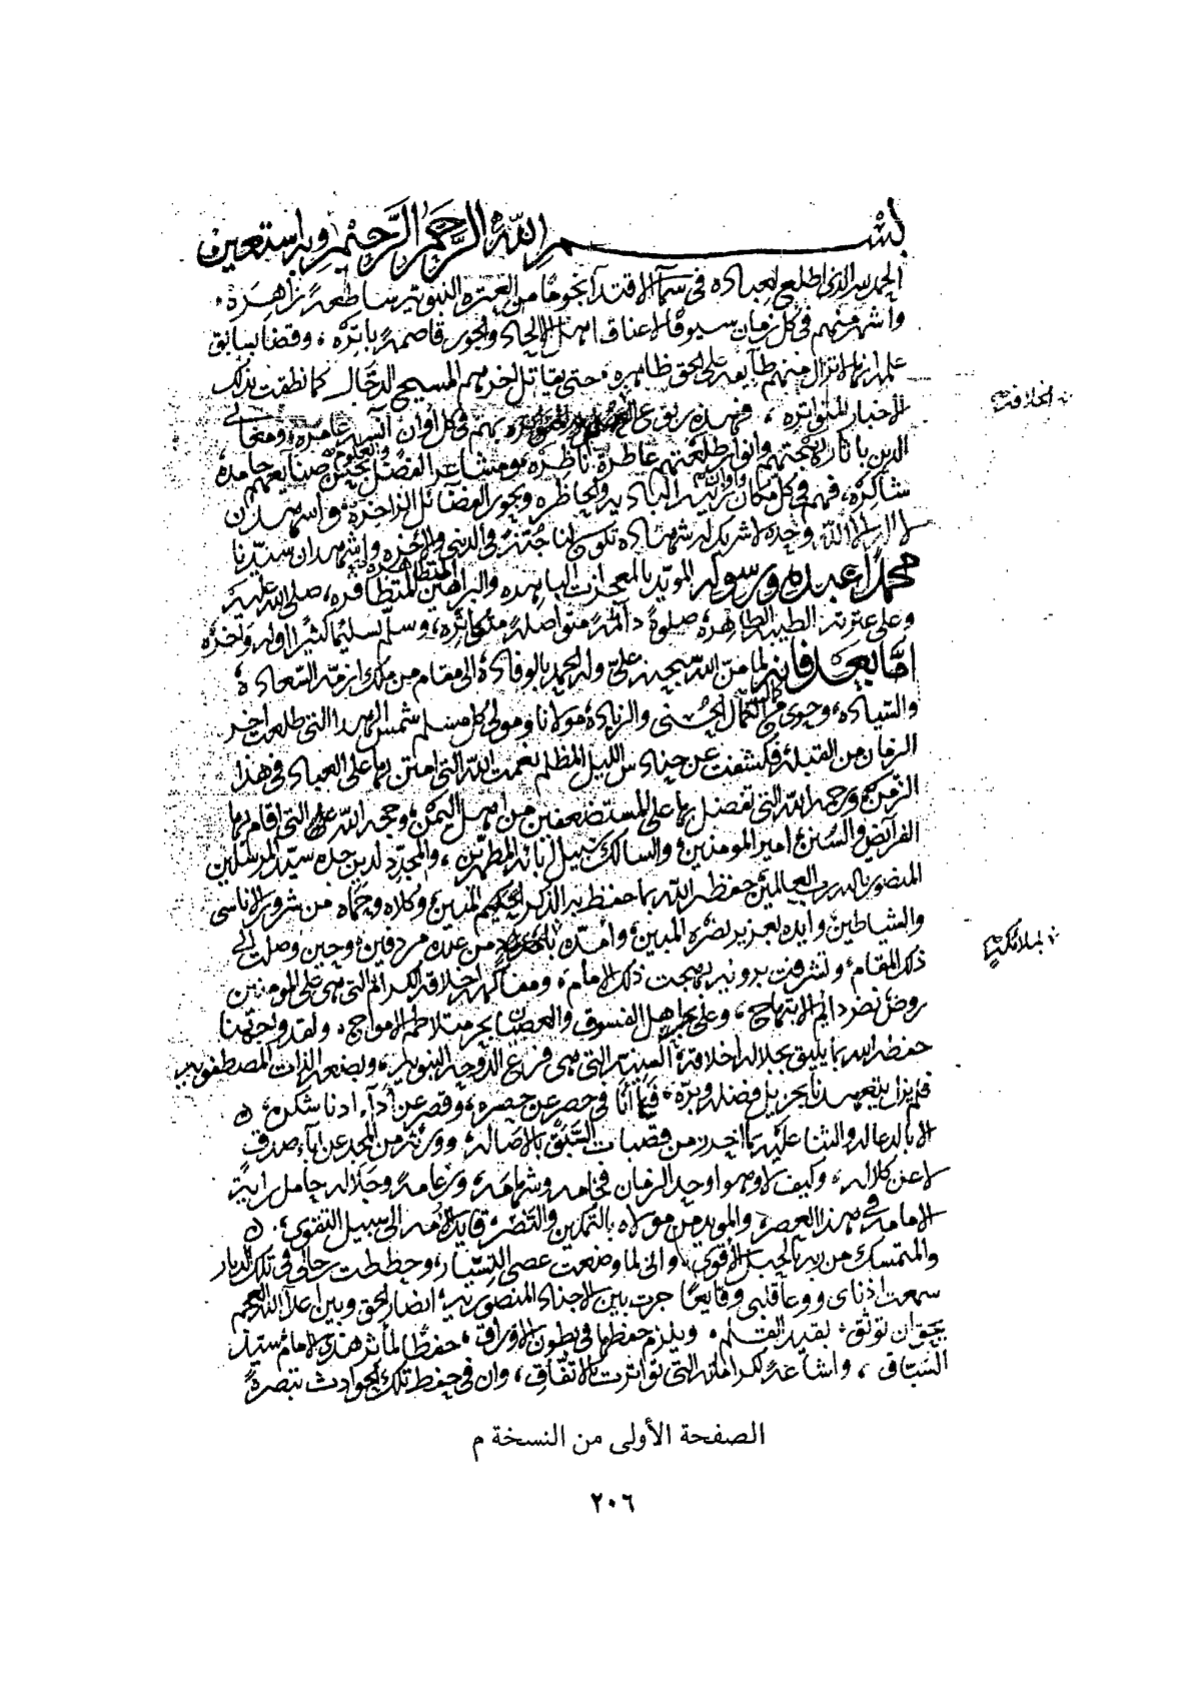 بسم الله الرحمن الرحيم وبه استعين
الحمد لله الذي اطلع لعباده في سمآء الاقتدآ نجومًا من العترة النبوية ساطعة زاهرة،
واشهر منهم في كل زمان سيوفًا لاعناق اهل الالحاد والجور قاصمة باترة، وقضا بسابق
علمه انها لا تزال منهم طآيفة على الحق ظاهره، حتى يقاتل اخرهم المسيح الدجال كما نطقت بذلك
الاخبار المتواتره، فهذه ربوع بهم في كل أوان آنسة عامره، ومغاني
الدين باثار وانوار طلعتهم عاطرة ناظرة، ومشاعر الفضل والعلوم صنايعهم حامدة
شاكرة، فهم في كل مكان البادية والحاظره وبحور الفضآئل الزاخرة، واشهد ان
لا اله الا الله وحده لا شريك له شهادة تكون لنا جنة في الدنيا والاخره واشهد ان سيدنا
محمدًا عبده ورسوله المويد بالمعجزات الباهره والبراهين المتظاهرة المتظافره، صلى الله عليه
وعلى عترته الطيبه الطاهرة صلوةً دائمة متواصلة متكاثرة، وسلم تسليما كثيرا اوله واخره
امّا بعد فانه لما منّ الله سبحنه عليّ وله الحمد بالوفادة الى مقام من ملك ازمّة السعادة
والسيادة، وحوى من الكمال الحسنى والزيادة مولانا ومولى كل مسلم شمس الهدا التي طلعت اخر
الزمان من القبلة فكشفت عن حنادس الليل المظلم نعمت الله التي امتن بها على العباد في هذا
الزمن، ورحمة الله التي تفضل بها على المستضعفين من اهل اليمن، وحجة الله التي اقام بها
الفرآيض والسنن امير المومنين، والسالك سبيل ابآئه المطهرين، والمجدد لدين جده سيد المرسلين
المنصور بالله رب العالمين حفظه الله بما حفظ به الذكر الحكيم المبين، وكلاه وحماه من شرور الاناسي
والشياطين وايده بعزيز نصره المبين، وامده من عنده مردفين، وحين وصلت الى
ذلك المقام، وتشرفت برونيه بهجت ذلك الامام، ومفاكهة اخلاقه الكرام التي هي على المومنين
روض نضر دايم الابتهاج، وعلى اهل الفسوق والعصيان بحر متلاطم الامواج، ولقد وجهنا
حفظه الله بما يليق بجلاله اخلاقه السنية التي هي فرع الدوحة النبويه، وبضعة الذات المصطفويه
فلم يزل يتعهدنا بجزيل فضله وبره، فيما انا في حصر عن حصره، وقصر عن أدآء ادنا شكره،
الا بالدعا له والثنا عليه بما احرز من قصبات السبق بالاصاله، وورثه من المجد عن ابآء صدق
لا عن كلاله، وكيف لا وهو اوحد الزمان فخامه وشهامه، وزعامه وجلاله حامل راية
الامامه في هذا العصر، والمويد من مولاه بالتمكين والنصر، قايد الامه الى سبيل التقوى،
والمتمسك من ربه بالحبل الأقوى، واني لما وضعت عصى التسيار، وحططت رحالي في تلك الديار
سمعت اذناي ووعا قلبي وقايعًا جرت بين الاجناد المنصوريه، انصار الحق وبين اعدآ الله العجم
يجب ان توثق بقيد القلم، ويلزم حفظها في بطون الاوراق، حفظًا لمأثر هذي الامام سيد
السباق، واشاعة لكراماته التي تواترت بالاتفاق، وان في حفظ تلك الحوادث تبصرةً
الصفحة الأولى من النسخة م
٢٠٦